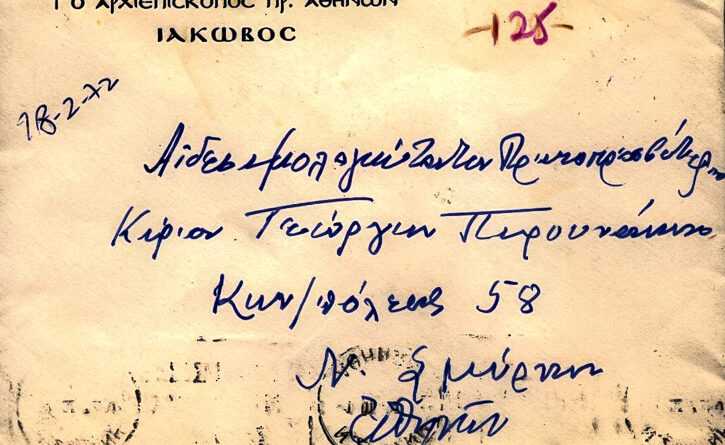 † Ο ΑΡΧΙΕΠΙΣΚΟΠΟΣ ΠΡ. ΑΘΗΝΩΝ
ΙΑΚΩΒΟΣ
-125-
18-2-72
Αἰδεσιμολογιώτατον Πρωτοπρεσβύτερον
Κύριον Γεώργιον Πυρουνάκην
Κων/πόλεως 58
Ν. Σμύρνην
Ἀθηνῶν